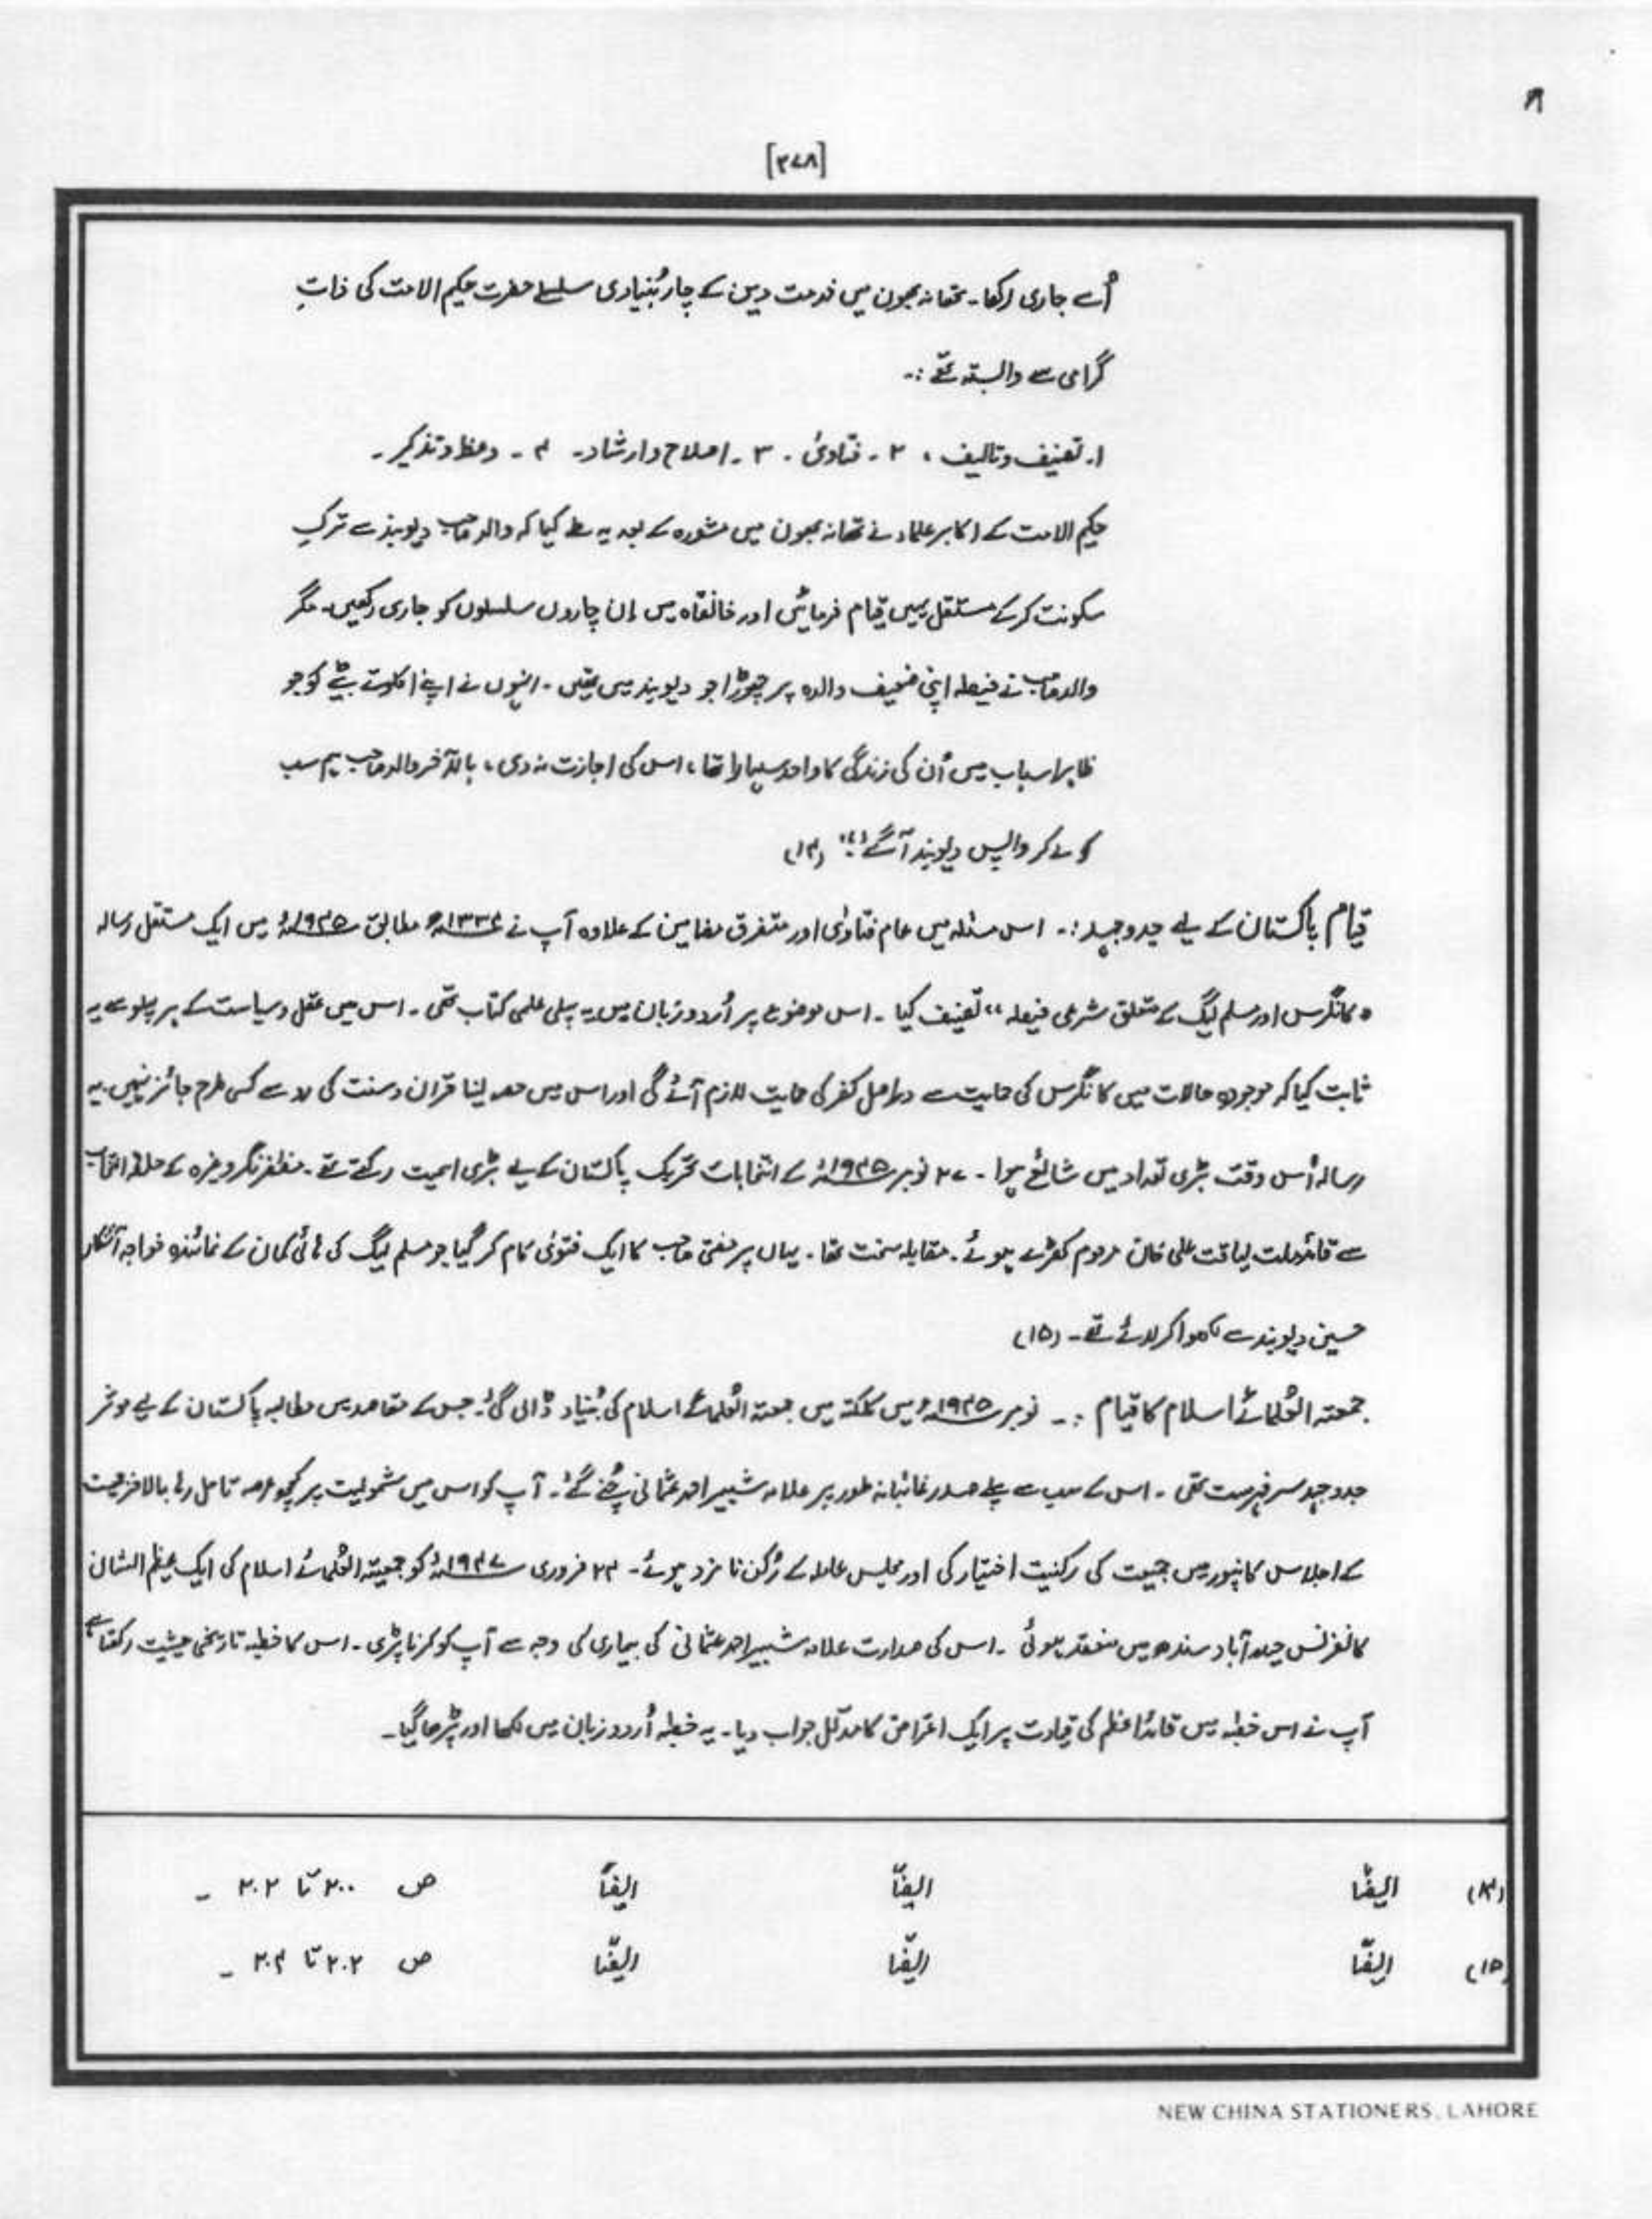 [۳۷۸]
اُسے جاری رکھا۔ تھانہ بھون میں خدمت دین کے چار بُنیادی سلسلے حضرت حکیم الامت کی ذاتِ
گرامی سے وابستہ تھے :۔
۱۔ تصنیف و تالیف ، ۲ ۔ فتاویٰ ۔ ۳ ۔ اصلاح و ارشاد۔ ۴ ۔ وعظ و تذکیر ۔
حکیم الامت کے اکابر علماء نے تھانہ بھون میں مشورہ کے بعد یہ طے کیا کہ والد صاحب دیوبند سے ترکِ
سکونت کر کے مستقل یہیں قیام فرمائیں اور خانقاہ میں اِن چاروں سلسلوں کو جاری رکھیں۔ مگر
والد صاحب نے فیصلہ اپنی ضعیف والدہ پر چھوڑا جو دیوبند میں تھیں ۔ انہوں نے اپنے اکلوتے بیٹے کو جو
ظاہر اسباب میں اُن کی زندگی کا واحد سہارا تھا ، اس کی اجازت نہ دی ، بالآخر والد صاحب ہم سب
کو لے کر واپس دیوبند آ گئے۔" (۱۴)
قیام پاکستان کے لیے جدوجہد :۔ اس مسئلہ میں عام فتاوٰی اور متفرق مضامین کے علاوہ آپ نے مطابق ۱۹۴۵ء میں ایک مستقل رسالہ
" کانگرس اور مسلم لیگ کے متعلق شرعی فیصلہ " تصنیف کیا ۔ اس موضوع پر اُردو زبان میں یہ پہلی علمی کتاب تھی ۔ اس میں عقل و سیاست کے ہر پہلو سے یہ
ثابت کیا کہ موجودہ حالات میں کانگرس کی حمایت سے دراصل کفر کی حمایت لازم آئے گی اور اس میں حصہ لینا قرآن و سنت کی رو سے کسی طرح جائز نہیں۔ یہ
رسالہ اُس وقت بڑی تعداد میں شائع ہوا ۔ ۲۷ نومبر ۱۹۴۵ء کے انتخابات تحریک پاکستان کے لیے بڑی اہمیت رکھتے تھے ۔ مظفر نگر وغیرہ کے حلقہ انتخاب
سے قائد ملت لیاقت علی خان مرحوم کھڑے ہوئے ۔ مقابلہ سخت تھا ۔ یہاں پر مفتی صاحب کا ایک فتویٰ کام کر گیا جو مسلم لیگ کی ہائی کمان کے نمائندہ خواجہ آشکار
حسین دیوبند سے لکھوا کر لائے تھے ۔ (۱۵)
جمعتہ العُلمائے اسلام کا قیام :۔ نومبر ۱۹۴۵ء میں کلکتہ میں جمعتہ العُلمائے اسلام کی بُنیاد ڈالی گئی۔ جس کے مقاصد میں مطالبہ پاکستان کے لیے موثر
جدوجہد سر فہرست تھی ۔ اس کے سب سے پہلے صدر غائبانہ طور پر علامہ شبیر احمد عثمانی چُنے گئے ۔ آپ کو اس میں شمولیت پر کچھ عرصہ تامل رہا بالاخر جمیت
کے اجلاس کانپور میں جمیت کی رکنیت اختیار کی اور مجلس عاملہ کے رُکن نامزد ہوئے ۔ ۲۴ فروری ۱۹۴۷ء کو جمعیتہ العُلمائے اسلام کی ایک عظیم الشان
کانفرنس حیدر آباد سندھ میں منعقد ہوئی ۔ اس کی صدارت علامہ شبیر احمد عثمانی کی بیماری کی وجہ سے آپ کو کرنا پڑی ۔ اس کا خطبہ تاریخی حیثیت رکھتا ہے
آپ نے اس خطبہ میں قائد اعظم کی قیادت پر ایک اعتراض کا مدّلل جواب دیا ۔ یہ خطبہ اُردو زبان میں لکھا اور پڑھا گیا ۔
(۱۴) ایضاً ایضاً ایضاً ص ۲۰۰ تا ۲۰۲ ۔
(۱۵) ایضاً ایضاً ایضاً ص ۲۰۲ تا ۲۰۴ ۔
NEW CHINA STATIONERS, LAHORE